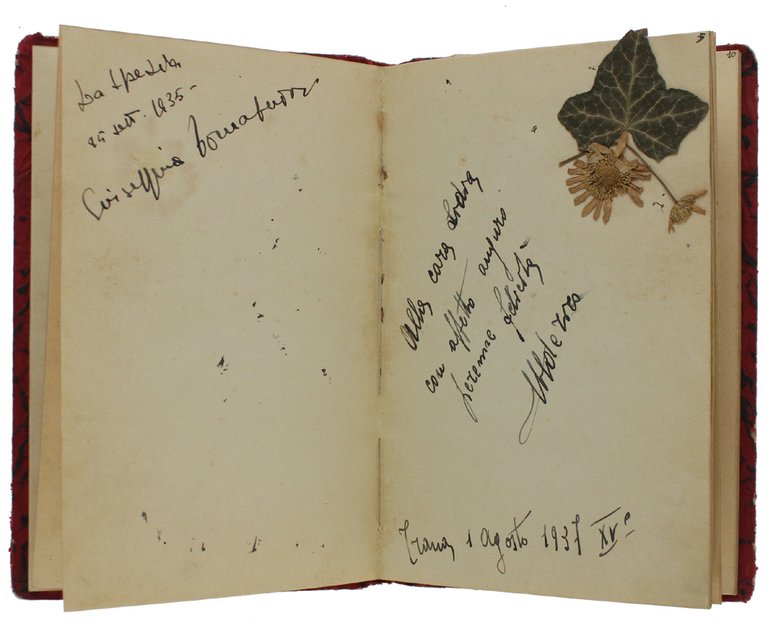 La Spezia
25 sett. 1935 -
Giuseppina
Alla cara
con affetto auguro
perenne felicità
Trana, 1 Agosto 1937 XVº
5
10